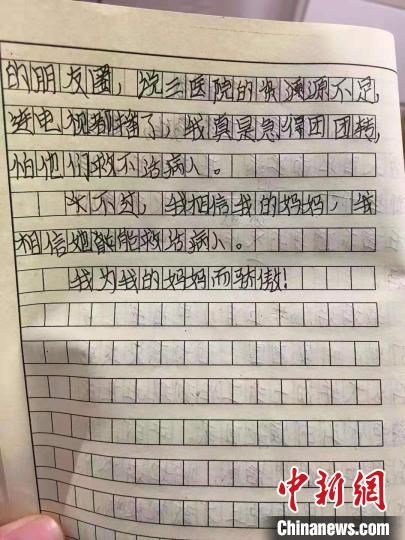 的朋友圈，说三医院的源不足，
连电视都播了，我真是急得团团转，
怕他们救不活病人。
不过，我相信我的妈妈，我
相信她能救活病人。
我为我的妈妈而骄傲！
中新网
Chinanews.com